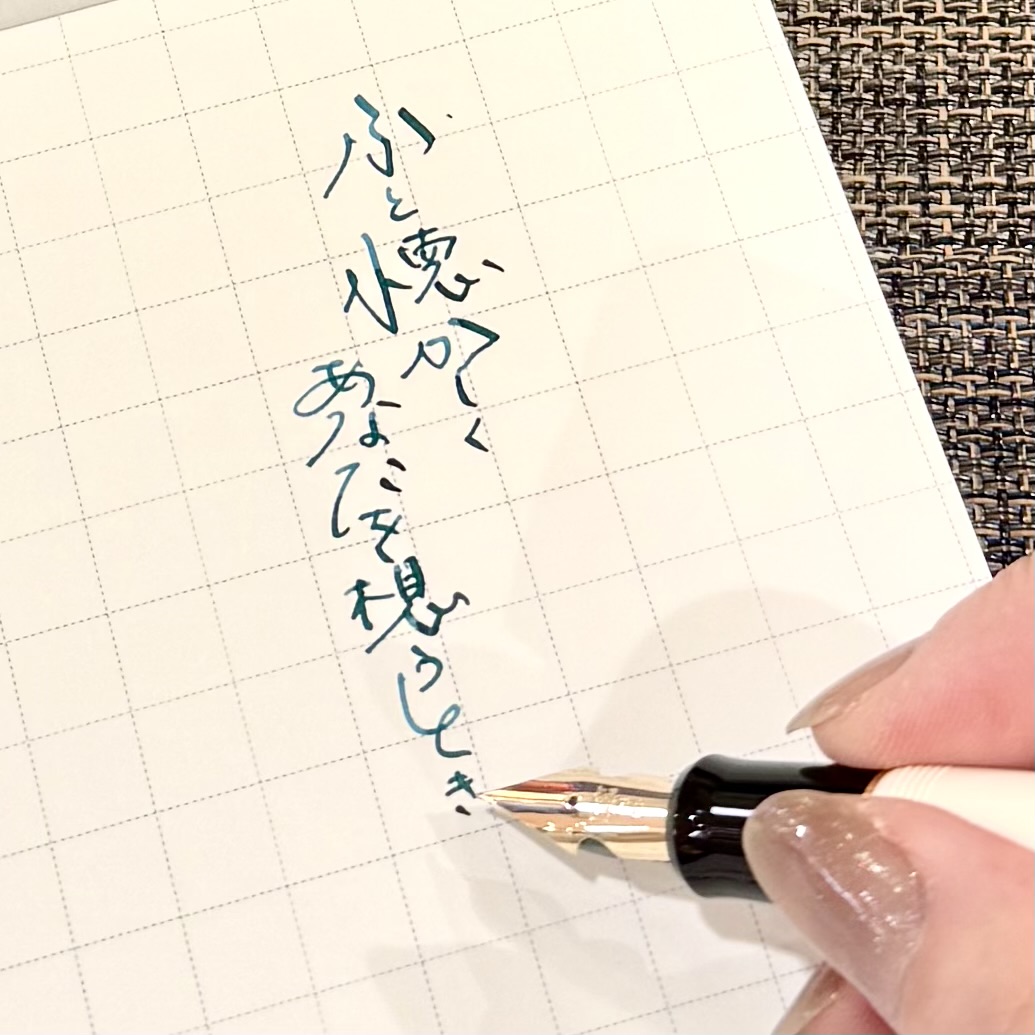 ふと懐かしく
あなたを想うとき